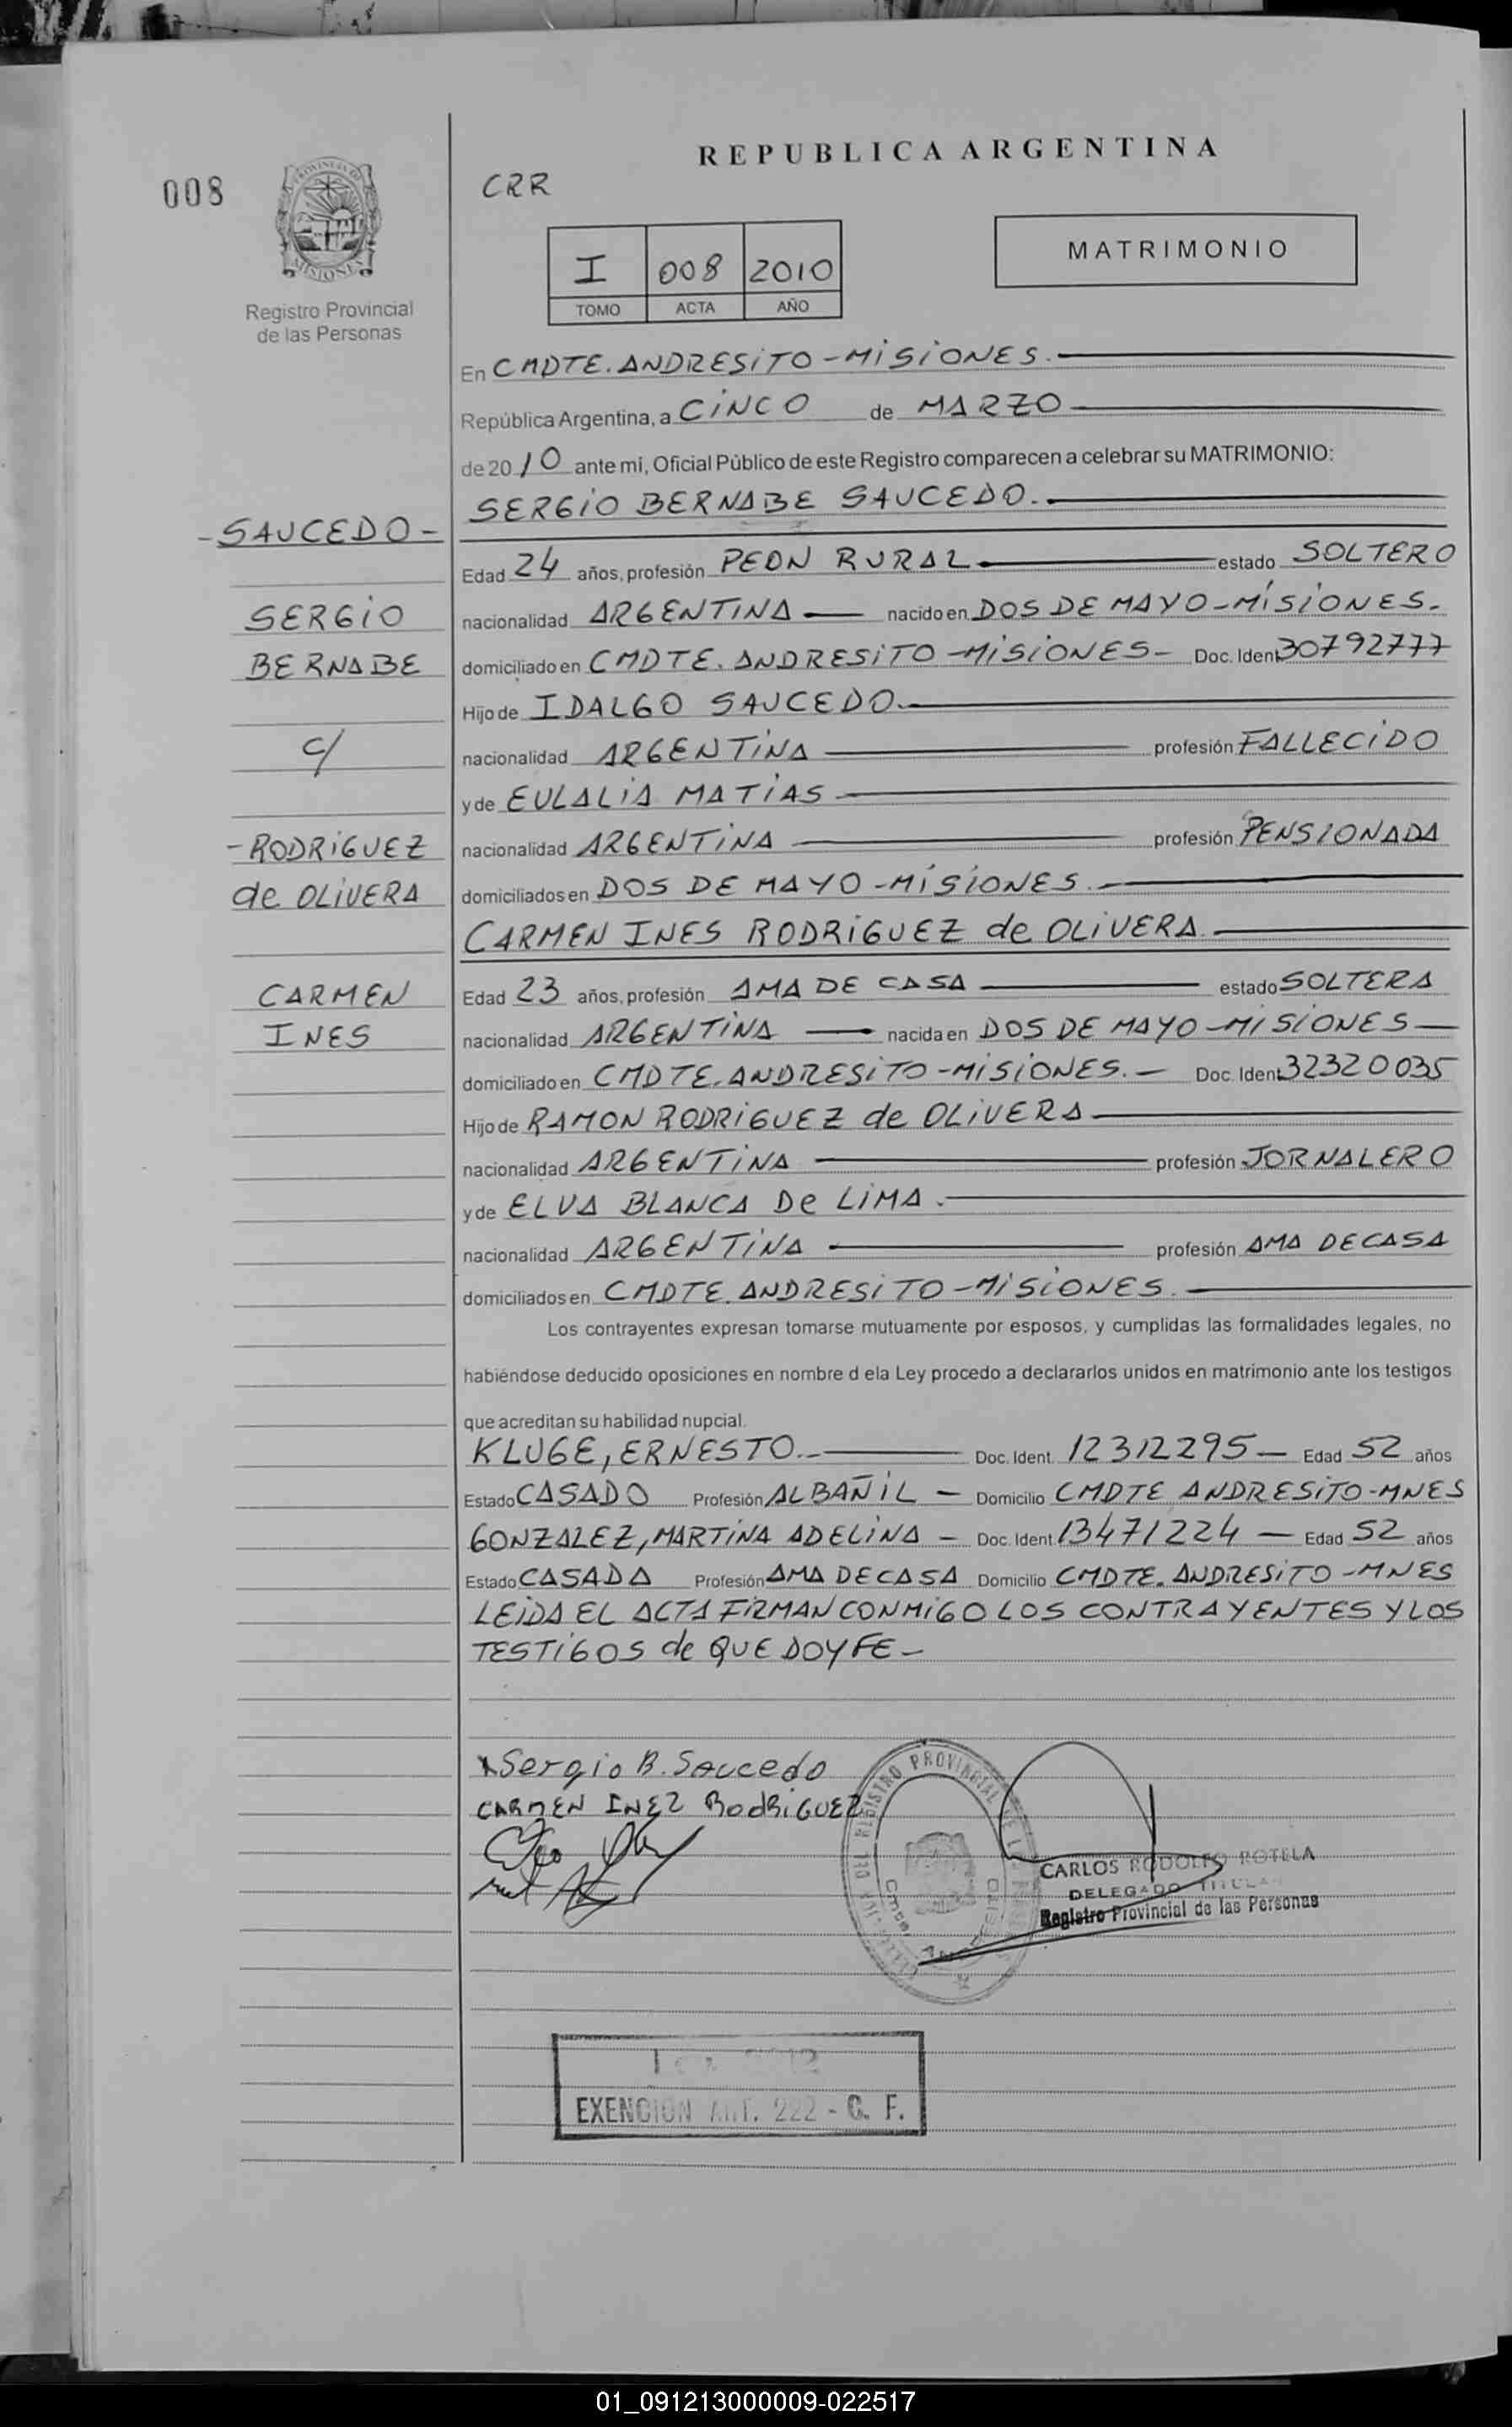 008
PROVINCIA DE
MISIONES
Registro Provincial
de las Personas
REPUBLICA ARGENTINA
CRR
I 008 2010
TOMO ACTA AÑO
MATRIMONIO
En CMDTE. ANDRESiTO - MiSiONES.
República Argentina, a CiNCO de MARZO
de 20 10 ante mi, Oficial Público de este Registro comparecen a celebrar su MATRIMONIO:
SERGiO BERNABE SAUCEDO.
- SAUCEDO -
Edad 24 años, profesión PEON RURAL estado SOLTERO
SERGiO
nacionalidad ARGENTINA nacido en DOS DE MAYO - MiSiONES.
BERNABE
domiciliado en CMDTE. ANDRESiTO - MiSiONES - Doc. Ident 30792777
Hijo de IDALGO SAUCEDO.
c/
nacionalidad ARGENTiNA profesión FALLECiDO
y de EULALiA MATiAS
- RODRiGUEZ
nacionalidad ARGENTiNA profesión PENSIONADA
de OLiVERA
domiciliados en DOS DE MAYO - MiSiONES.
CARMEN INES RODRiGUEZ de OLiVERA.
CARMEN
Edad 23 años, profesión AMA DE CASA estado SOLTERA
INES
nacionalidad ARGENTiNA nacida en DOS DE MAYO - MiSiONES
domiciliado en CMDTE. ANDRESiTO - MiSiONES. - Doc. Ident 32320035
Hijo de RAMON RODRiGUEZ de OLiVERA
nacionalidad ARGENTiNA profesión JORNALERO
y de ELVA BLANCA De LiMA.
nacionalidad ARGENTiNA profesión AMA DE CASA
domiciliados en CMDTE. ANDRESiTO - MiSiONES.
Los contrayentes expresan tomarse mutuamente por esposos, y cumplidas las formalidades legales, no
habiéndose deducido oposiciones en nombre d ela Ley procedo a declararlos unidos en matrimonio ante los testigos
que acreditan su habilidad nupcial.
KLUGE, ERNESTO. - Doc. Ident. 12312295 - Edad 52 años
Estado CASADO Profesión ALBAÑiL - Domicilio CMDTE ANDRESiTO - MNES
GONZALEZ, MARTiNA ADELiNA - Doc. Ident. 13471224 - Edad 52 años
Estado CASADA Profesión AMA DE CASA Domicilio CMDTE. ANDRESiTO - MNES
LEiDA EL ACTA FiRMAN CONMiGO LOS CONTRAYENTES Y LOS
TESTiGOS de QUE DOY FE -
x Sergio B. Saucedo
CARMEN INEZ RodRiGUEZ
REGISTRO PROVINCIAL DE
CARLOS RODOLFO ROTELA
DELEGADO TITULAR
Registro Provincial de las Personas
EXENCION ART. 222 - C. F.
01_091213000009-022517